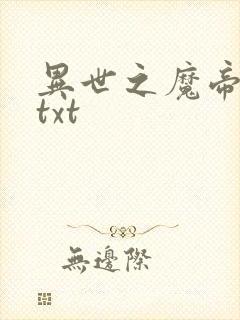 異世之魔帝
txt
無邊際